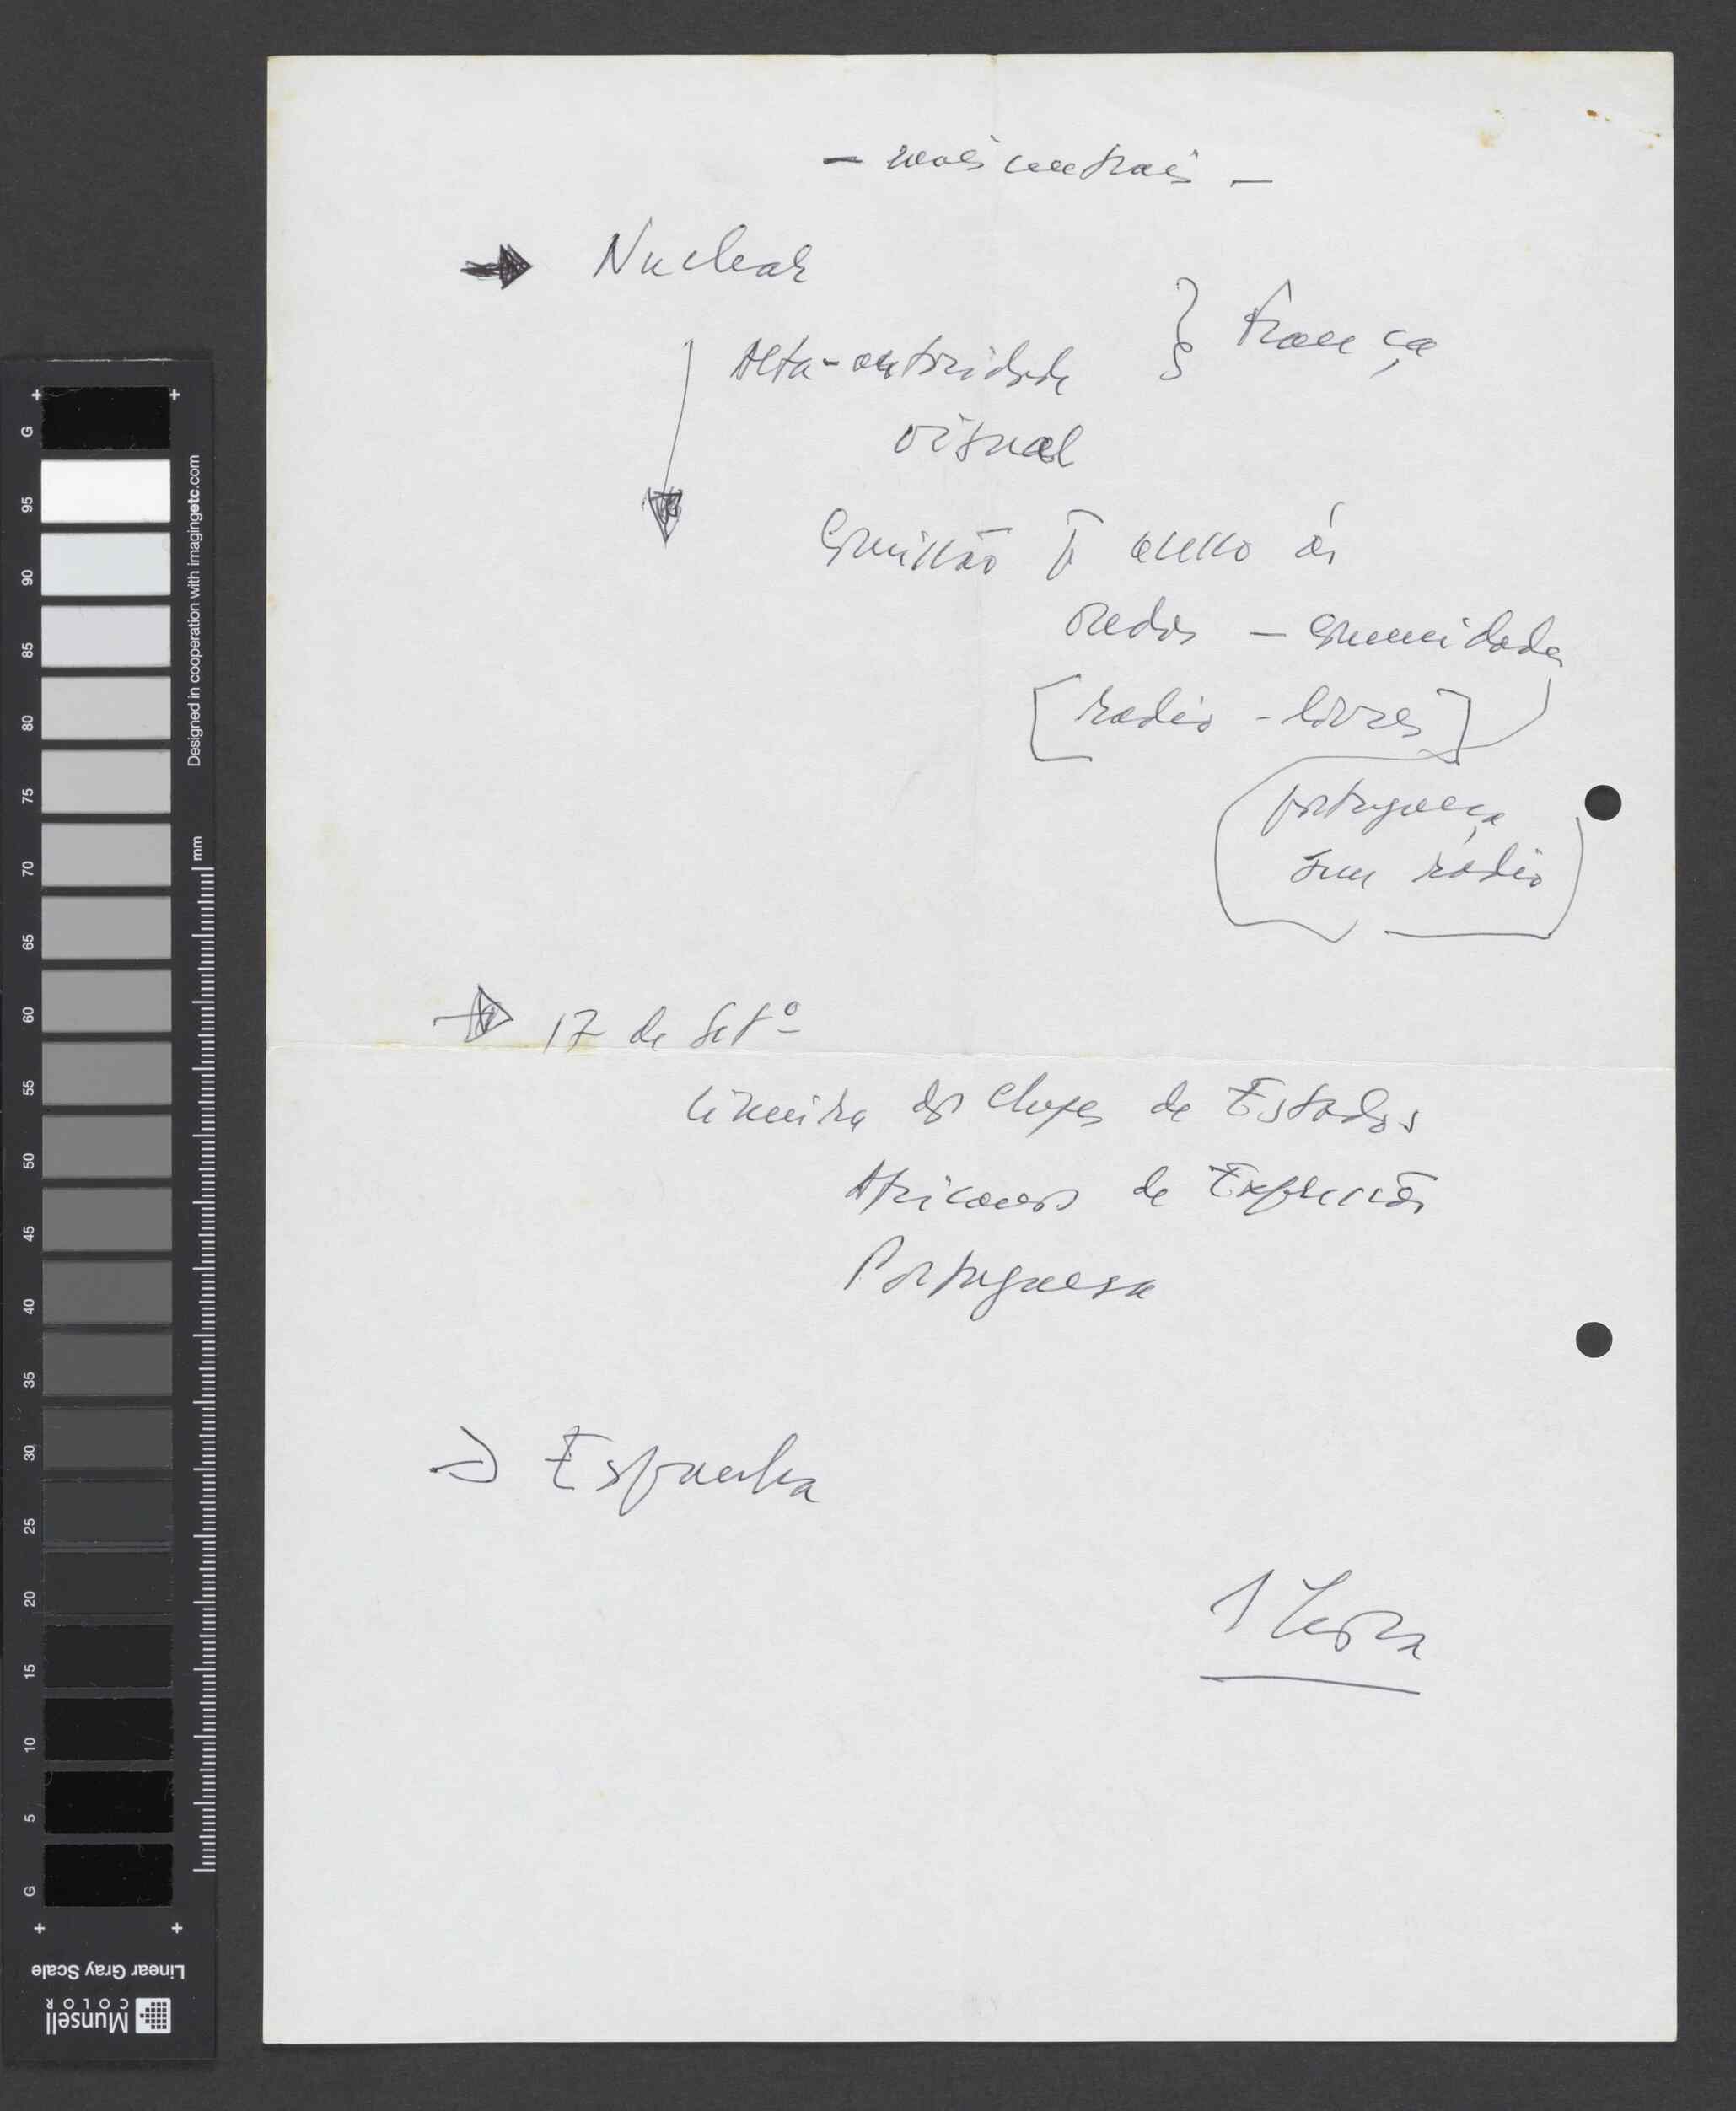 — mais centrais —
→ Nuclear
Alta-autoridade } França
visual
Comissão p. acesso às
ondas — comunidades
[radios - livres]
portuguesa
sem rádio
→ 17 de Setº
Cimeira dos Chefes de Estados
Africanos de Expressão
Portuguesa
→ Espanha
1 hora
G
95
90
85
80
75
70
65
60
55
50
45
40
35
30
25
20
15
10
5
G
Designed in cooperation with imagingetc.com
mm
Linear Gray Scale
Munsell
COLOR